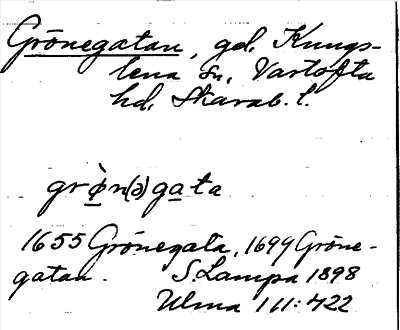 Grönegatan, gd, Kungs-
lena sn, Vartofta
hd, Skarab. l.
grø̀n(ə)gata
1655 Grönegata, 1699 Gröne-
gatan. S. Lampa 1898
Ulma 111:422